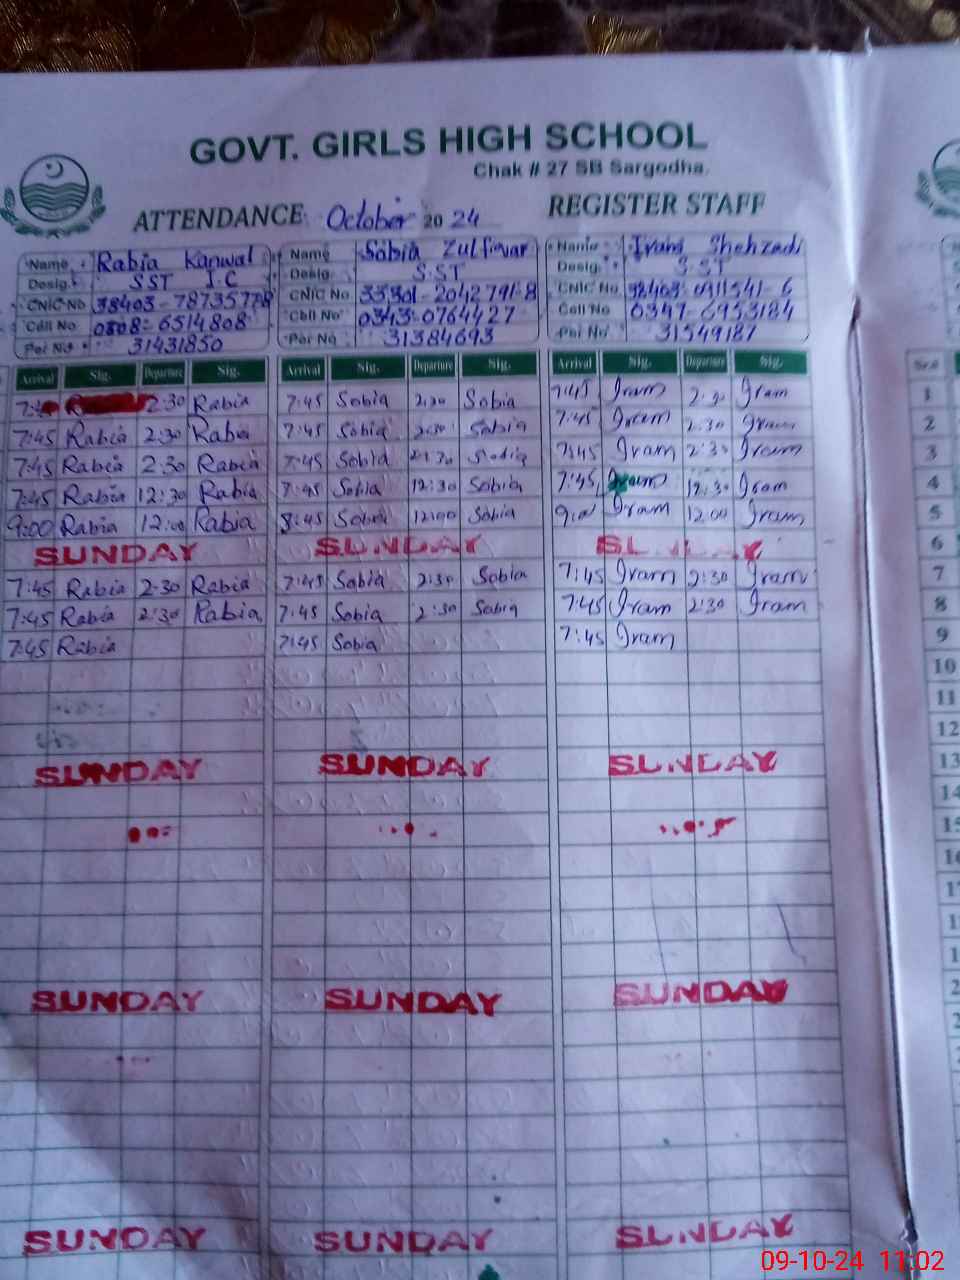 GOVT. GIRLS HIGH SCHOOL
Chak # 27 SB Sargodha.
ATTENDANCE October 2024 REGISTER STAFF
Name Rabia Kanwal Name Sobia Zulfiqar Name Iram Shehzadi
Desig. SST I.C Desig. S.ST Desig. S.ST
CNIC No CNIC No 33301-2042791-8 CNIC No
Cell No 0308-6514808 Cell No 0343-0764427 Cell No 0347-6953184
Per No 31431850 Per No 31384693 Per No 31549187
Arrival Sig. Departure Sig. Arrival Sig. Departure Sig. Arrival Sig. Departure Sig. Sr.#
2:30 Rabia 7:45 Sobia 2:30 Sobia 7:45 Iram 2:30 Iram 1
7:45 Rabia 2:30 Rabia 7:45 Sobia 2:30 Sobia 7:45 Iram 2:30 Iram 2
7:45 Rabia 2:30 Rabia 7:45 Sobia 2:30 Sobia 7:45 Iram 2:30 Iram 3
7:45 Rabia 12:30 Rabia 7:45 Sobia 12:30 Sobia 7:45 Iram 12:30 Iram 4
9:00 Rabia 12:00 Rabia 8:45 Sobia 12:00 Sobia 9:00 Iram 12:00 Iram 5
SUNDAY SUNDAY SUNDAY 6
7:45 Rabia 2:30 Rabia 7:45 Sobia 2:30 Sobia 7:45 Iram 2:30 Iram 7
7:45 Rabia 2:30 Rabia 7:45 Sobia 2:30 Sobia 7:45 Iram 2:30 Iram 8
7:45 Rabia 7:45 Sobia 7:45 Iram 9
10
11
12
SUNDAY SUNDAY SUNDAY 13
14
15
16
SUNDAY SUNDAY SUNDAY
SUNDAY SUNDAY SUNDAY
09-10-24 11:02